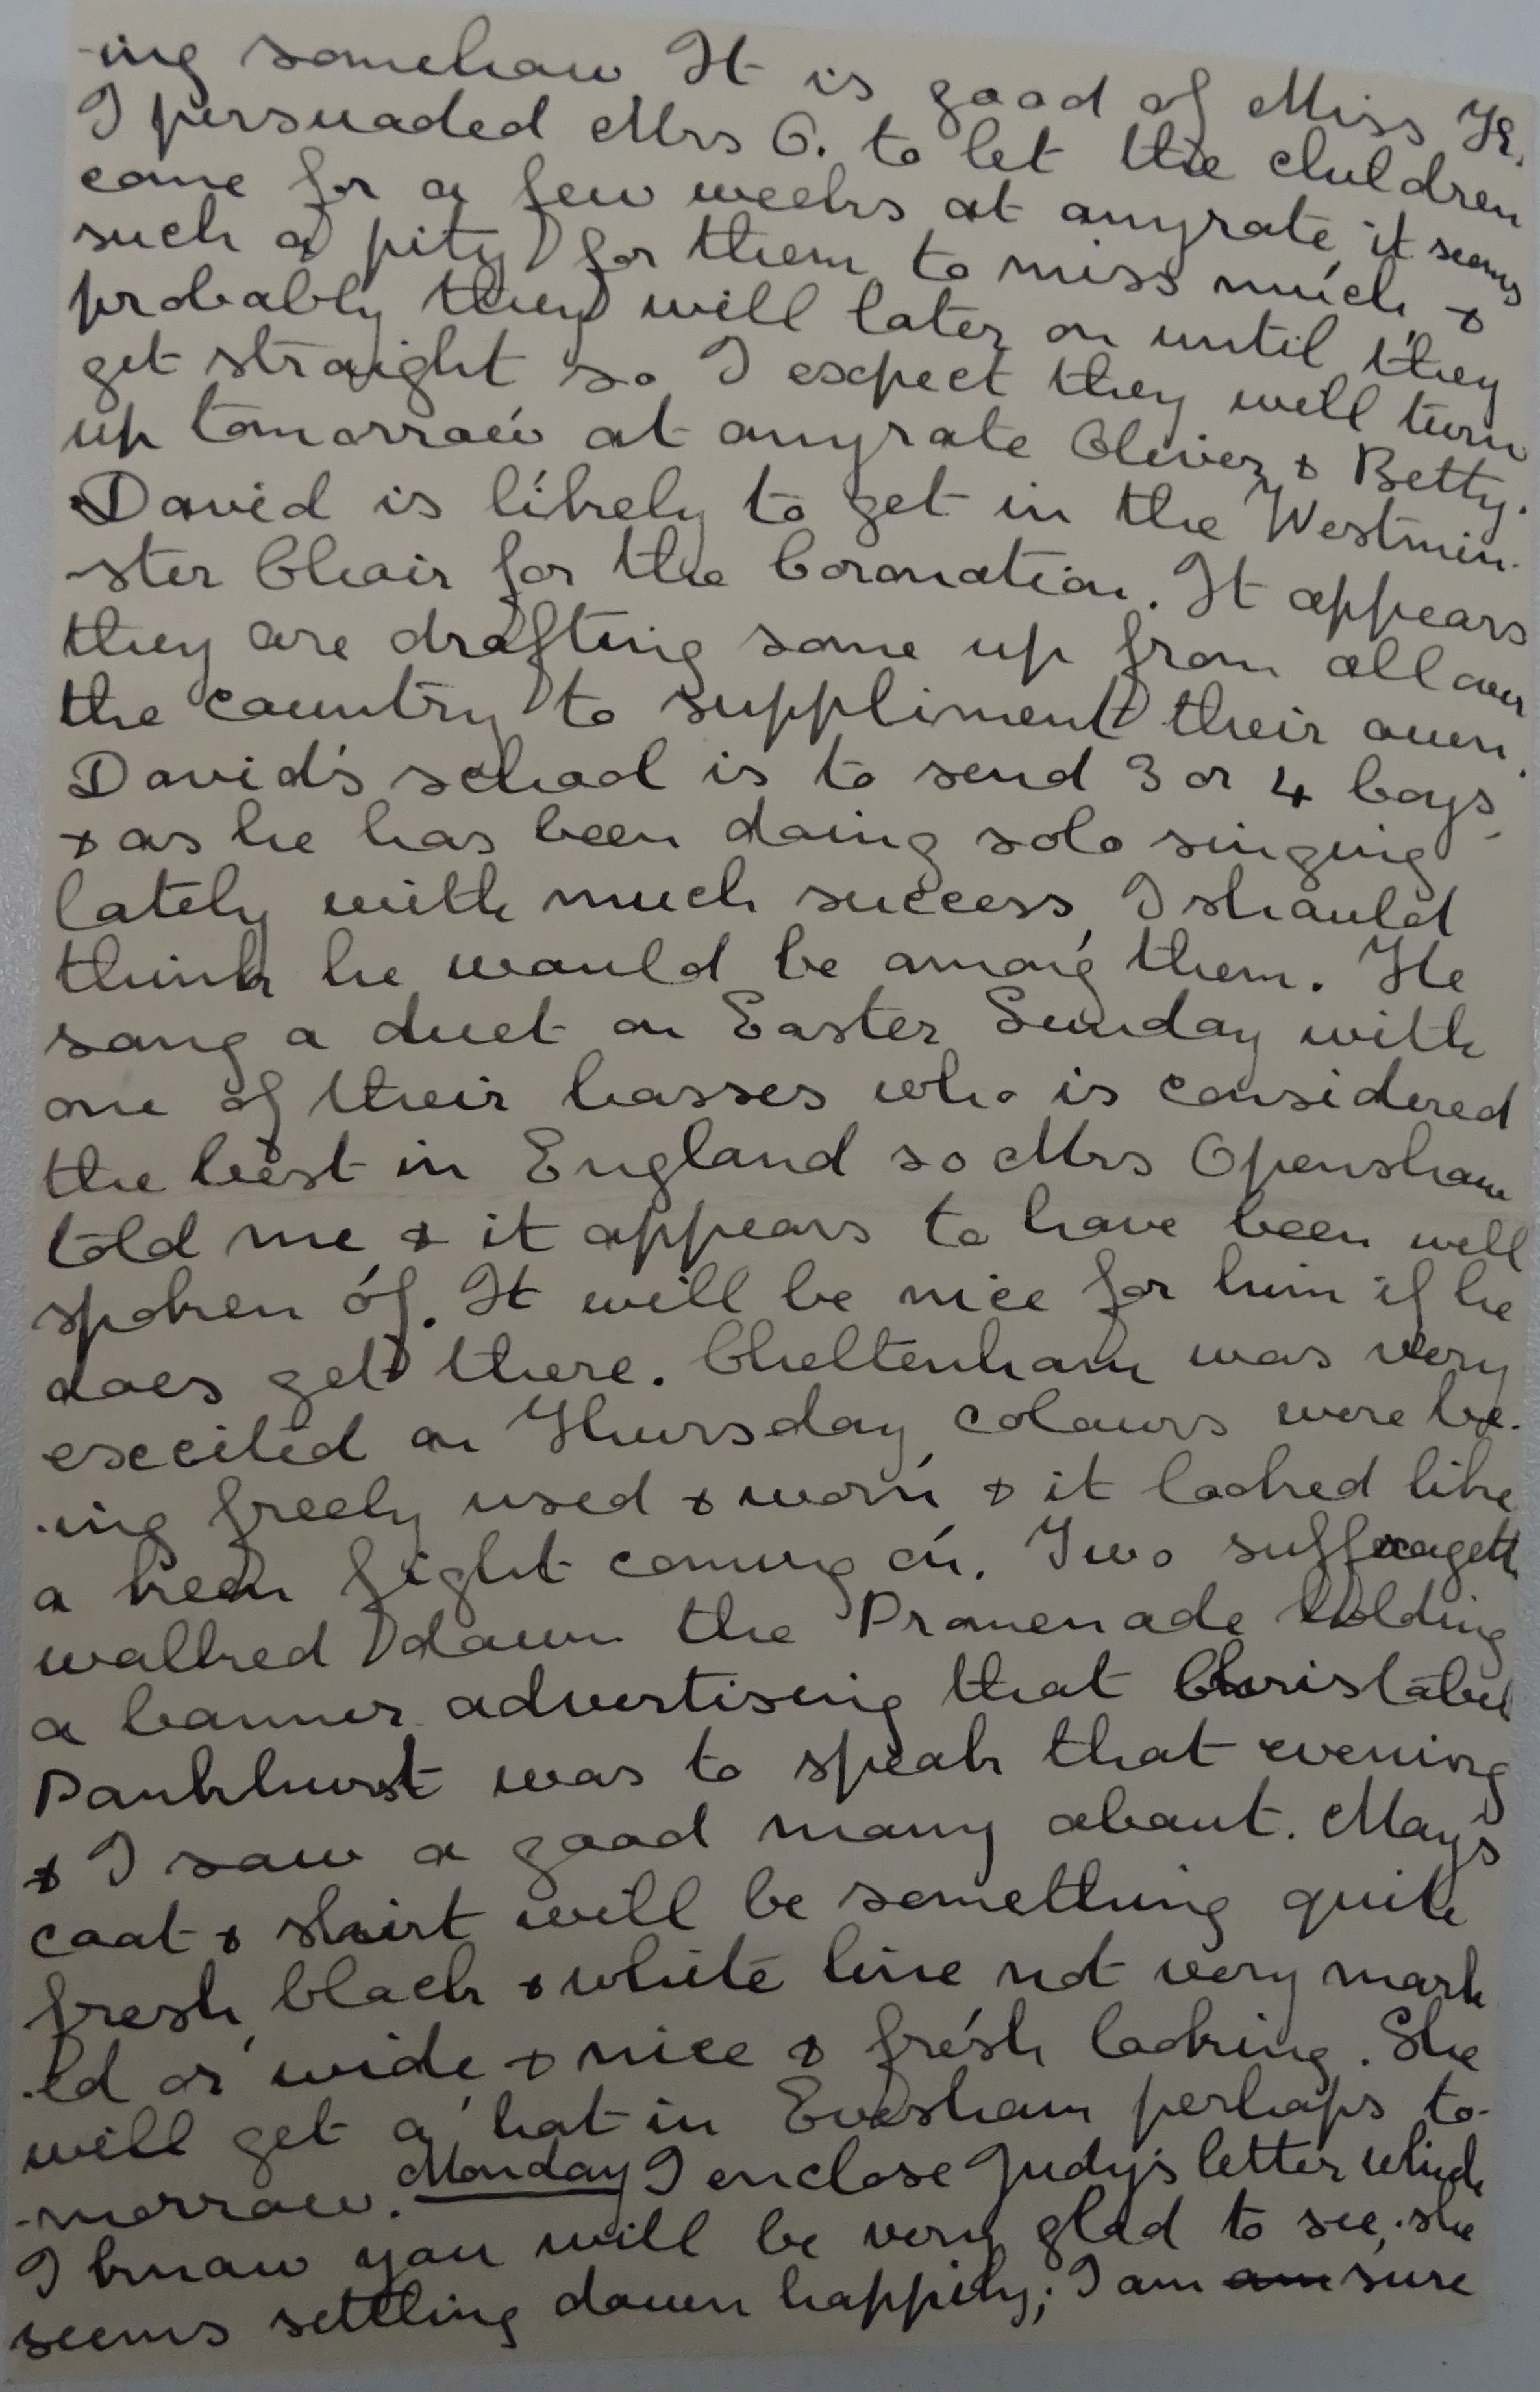 -ing somehow It is good of Miss H.
I persuaded Mrs O. to let the children
come for a few weeks at anyrate, it seems
such a pity for them to miss much, &
probably they will later on until they
get straight so I expect they will turn
up tomorrow at anyrate Oliver & Betty.
David is likely to get in the Westmin-
-ster Choir for the Coronation. It appears
they are drafting some up from all over
the country to suppliment their own.
David's school is to send 3 or 4 boys,
& as he has been doing solo singing
lately with much success, I should
think he would be among them. He
sang a duet on Easter Sunday with
one of their basses who is considered
the best in England so Mrs Openshaw
told me & it appears to have been well
spoken of. It will be nice for him if he
does get there. Cheltenham was very
excited on Thursday colours were be-
-ing freely used & worn & it looked like
a keen fight coming on. Two suffragett
walked down the Promenade holding
a banner advertising that Christabel
Pankhurst was to speak that evening
& I saw a good many about. May's
coat & skirt will be something quite
fresh, black & white line not very mark
-ed or wide & nice & fresh looking. She
will get a hat in Evesham perhaps to-
-morrow. Monday I enclose Judy's letter which
I know you will be very glad to see, she
seems settling down happily; I am am sure